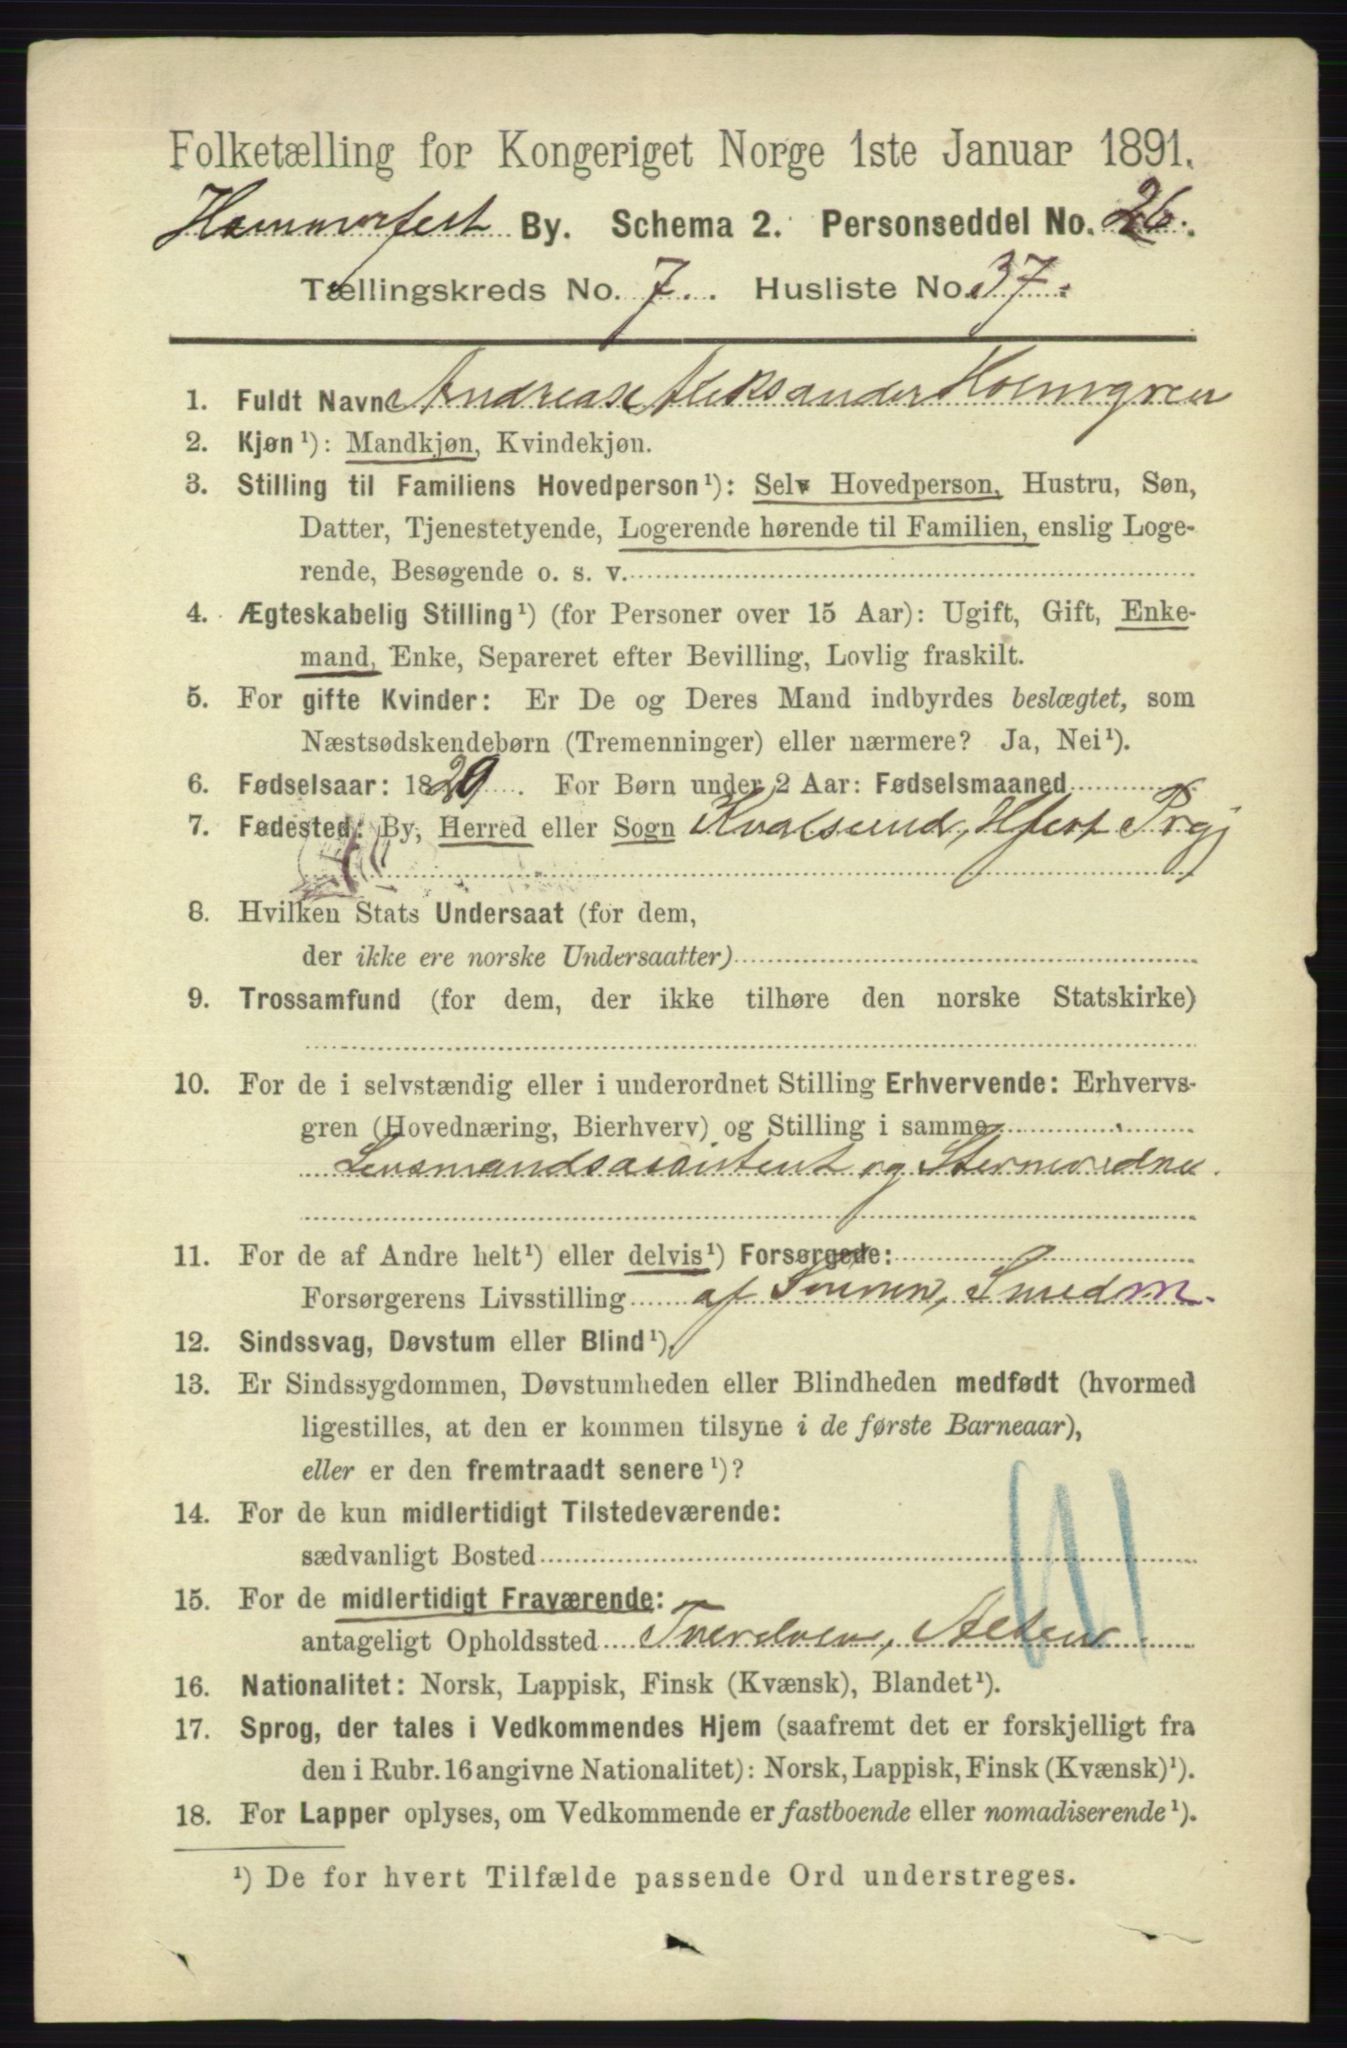 Folketælling for Kongeriget Norge 1ste Januar 1891.
Hammerfest By. Schema 2. Personseddel No. 26.
Tællingskreds No. 7. Husliste No. 37.
1. Fuldt Navn Andreas Aleksander Holmgren
2. Kjøn¹): Mandkjøn, Kvindekjøn.
3. Stilling til Familiens Hovedperson¹): Selv Hovedperson, Hustru, Søn,
Datter, Tjenestetyende, Logerende hørende til Familien, enslig Loge-
rende, Besøgende o. s. v.
4. Ægteskabelig Stilling¹) (for Personer over 15 Aar): Ugift, Gift, Enke-
mand, Enke, Separeret efter Bevilling, Lovlig fraskilt.
5. For gifte Kvinder: Er De og Deres Mand indbyrdes beslægtet, som
Næstsødskendebørn (Tremenninger) eller nærmere? Ja, Nei¹).
6. Fødselsaar: 1829. For Børn under 2 Aar: Fødselsmaaned
7. Fødested: By, Herred eller Sogn Kvalsund, Hfest Prgj
8. Hvilken Stats Undersaat (for dem,
der ikke ere norske Undersaatter)
9. Trossamfund (for dem, der ikke tilhøre den norske Statskirke)
10. For de i selvstændig eller i underordnet Stilling Erhvervende: Erhvervs-
gren (Hovednæring, Bierhverv) og Stilling i samme
Lensmandsassistent og
11. For de af Andre helt¹) eller delvis¹) Forsørgede:
Forsørgerens Livsstilling af Sønnen, Smedm.
12. Sindssvag, Døvstum eller Blind¹).
13. Er Sindssygdommen, Døvstumheden eller Blindheden medfødt (hvormed
ligestilles, at den er kommen tilsyne i de første Barneaar),
eller er den fremtraadt senere¹)?
14. For de kun midlertidigt Tilstedeværende:
sædvanligt Bosted
15. For de midlertidigt Fraværende:
antageligt Opholdssted Tverelven, Alten
16. Nationalitet: Norsk, Lappisk, Finsk (Kvænsk), Blandet¹).
17. Sprog, der tales i Vedkommendes Hjem (saafremt det er forskjelligt fra
den i Rubr. 16 angivne Nationalitet): Norsk, Lappisk, Finsk (Kvænsk)¹).
18. For Lapper oplyses, om Vedkommende er fastboende eller nomadiserende¹).
¹) De for hvert Tilfælde passende Ord understreges.